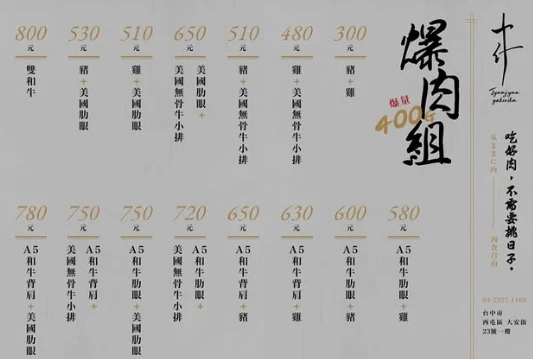 爆肉組
爆量
400G
300元
豬+雞
480元
雞+美國無骨牛小排
510元
豬+美國無骨牛小排
650元
美國肋眼+
美國無骨牛小排
510元
雞+美國肋眼
530元
豬+美國肋眼
800元
雙和牛
580元
A5和牛肋眼+雞
600元
A5和牛肋眼+豬
630元
A5和牛背肩+雞
650元
A5和牛背肩+豬
720元
A5和牛肋眼+
美國無骨牛小排
750元
A5和牛肋眼+美國肋眼
750元
A5和牛背肩+
美國無骨牛小排
780元
A5和牛背肩+美國肋眼
吃好肉，不需要挑日子。
台中市
西屯區 大安街
23號一樓